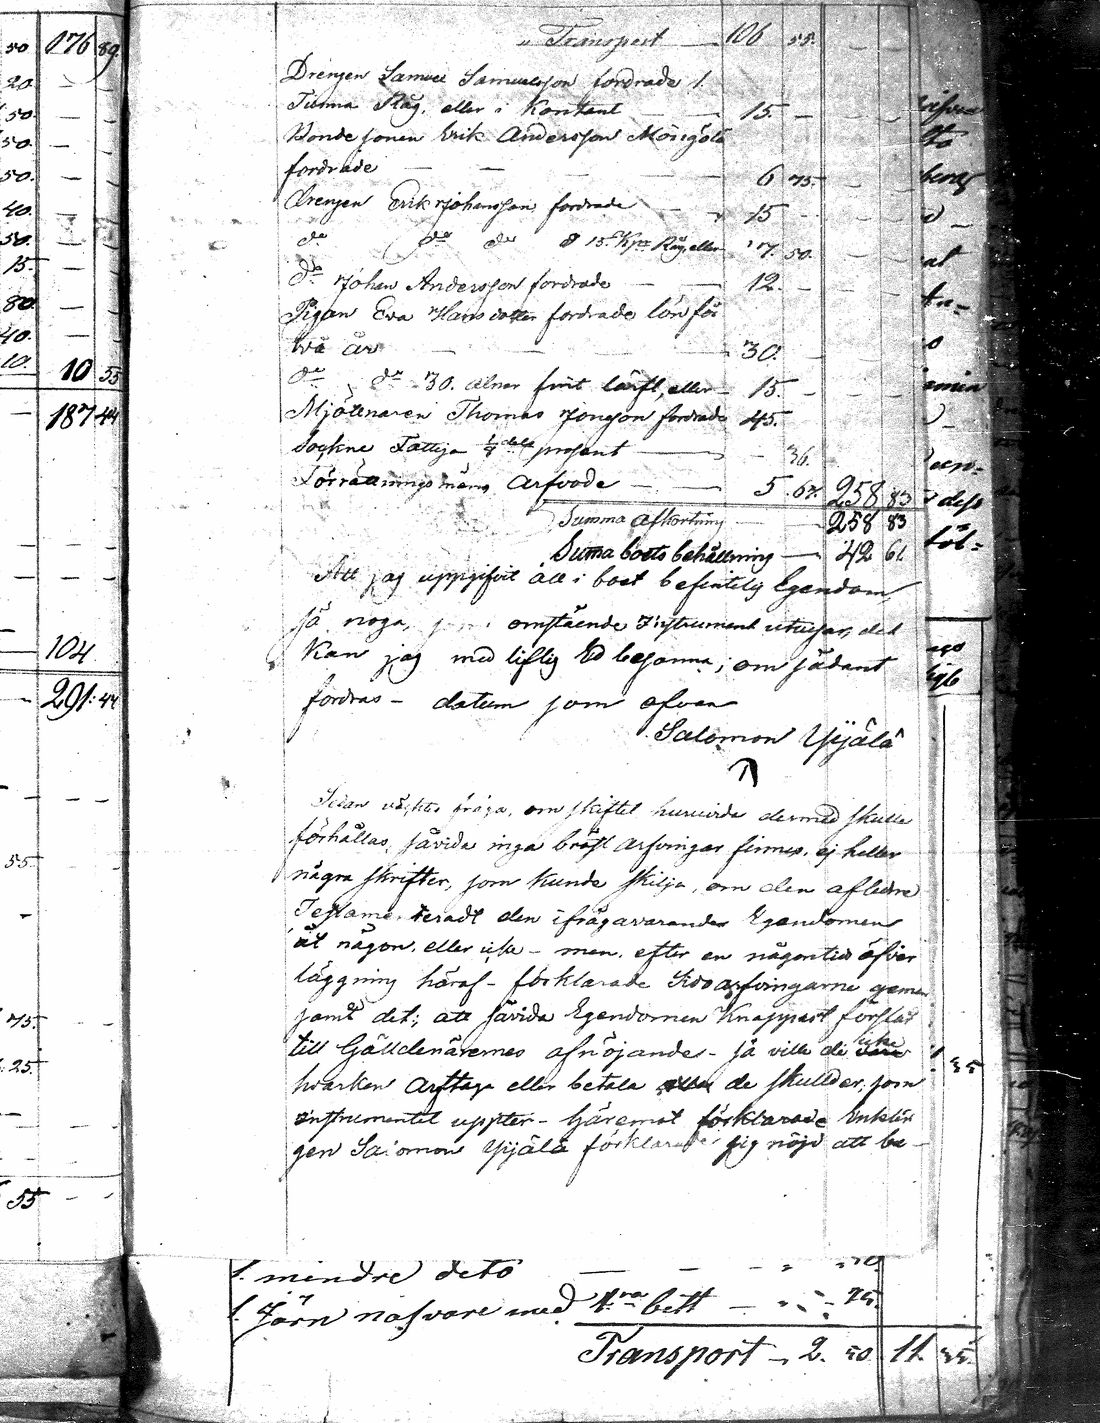 50 176 89.
20 — —
50 — —
50. — —
50. — —
40. — —
50. — —
15. — —
80. — —
40. — —
10. 10 55
187 44
104
291. 44
55
75.
25.
55
Transport — 106 55.
Drengen Samuel Samuelsson fordrade 1.
Tunna Råg, eller i Kontent — 15. —
Bondesonen Erik Andersson
fordrade — — — 6 75.
Drengen Erik Johansson fordrade — 15 —
do do do 15. Kpr Råg, eller 17. 50.
do Johan Andersson fordrade — — 12. —
Pigan Eva Hansdotter fordrade lön för
två år — — — 30.
do do 30. alnar fint lärft, eller — 15. —
Mjölnaren Thomas Jonsson fordrade 45.
Sockne Fattiga 1/8 dels prosent — — 36.
Förrättningsmäns Arfvode — — 5. 67. 258 83
Summa afkortning — 258 83
Suma boets behållning — 42 61.
Att jag uppgifvit allt i boet befintelig Egendom,
så noga, som omstående Instrument utvisar, det
kan jag med liflig Ed besanna; om sådant
fordras — datum som ofvan
Salomon Yijälä
Sedan väcktes fråga, om skiftet huruvida dermed skulle
förhållas, såvida inga bröst arfvingar finnes, ej heller
några skrifter, som kunde skilja, om den aflidne
Testamenteradt den ifrågavarande Egendomen
åt någon, eller icke — men, efter en någontids öfver
läggning häraf — förklarade Sidoarfvingarne gemen
samt det; att såvida Egendomen knappast förslår
till Gälldenärernes afnöjande — så ville de icke
hvarken arftaga eller betala de skullder, som
instrumentet uppter — Häremot förklarade Enklin
gen Salomon Yijälä förklarade sig nöjd att be —
1. mindre deto — — — 20.
1. Järn nafvare med 4.ra bett — 25.
Transport — 2. 50. 11. 35.